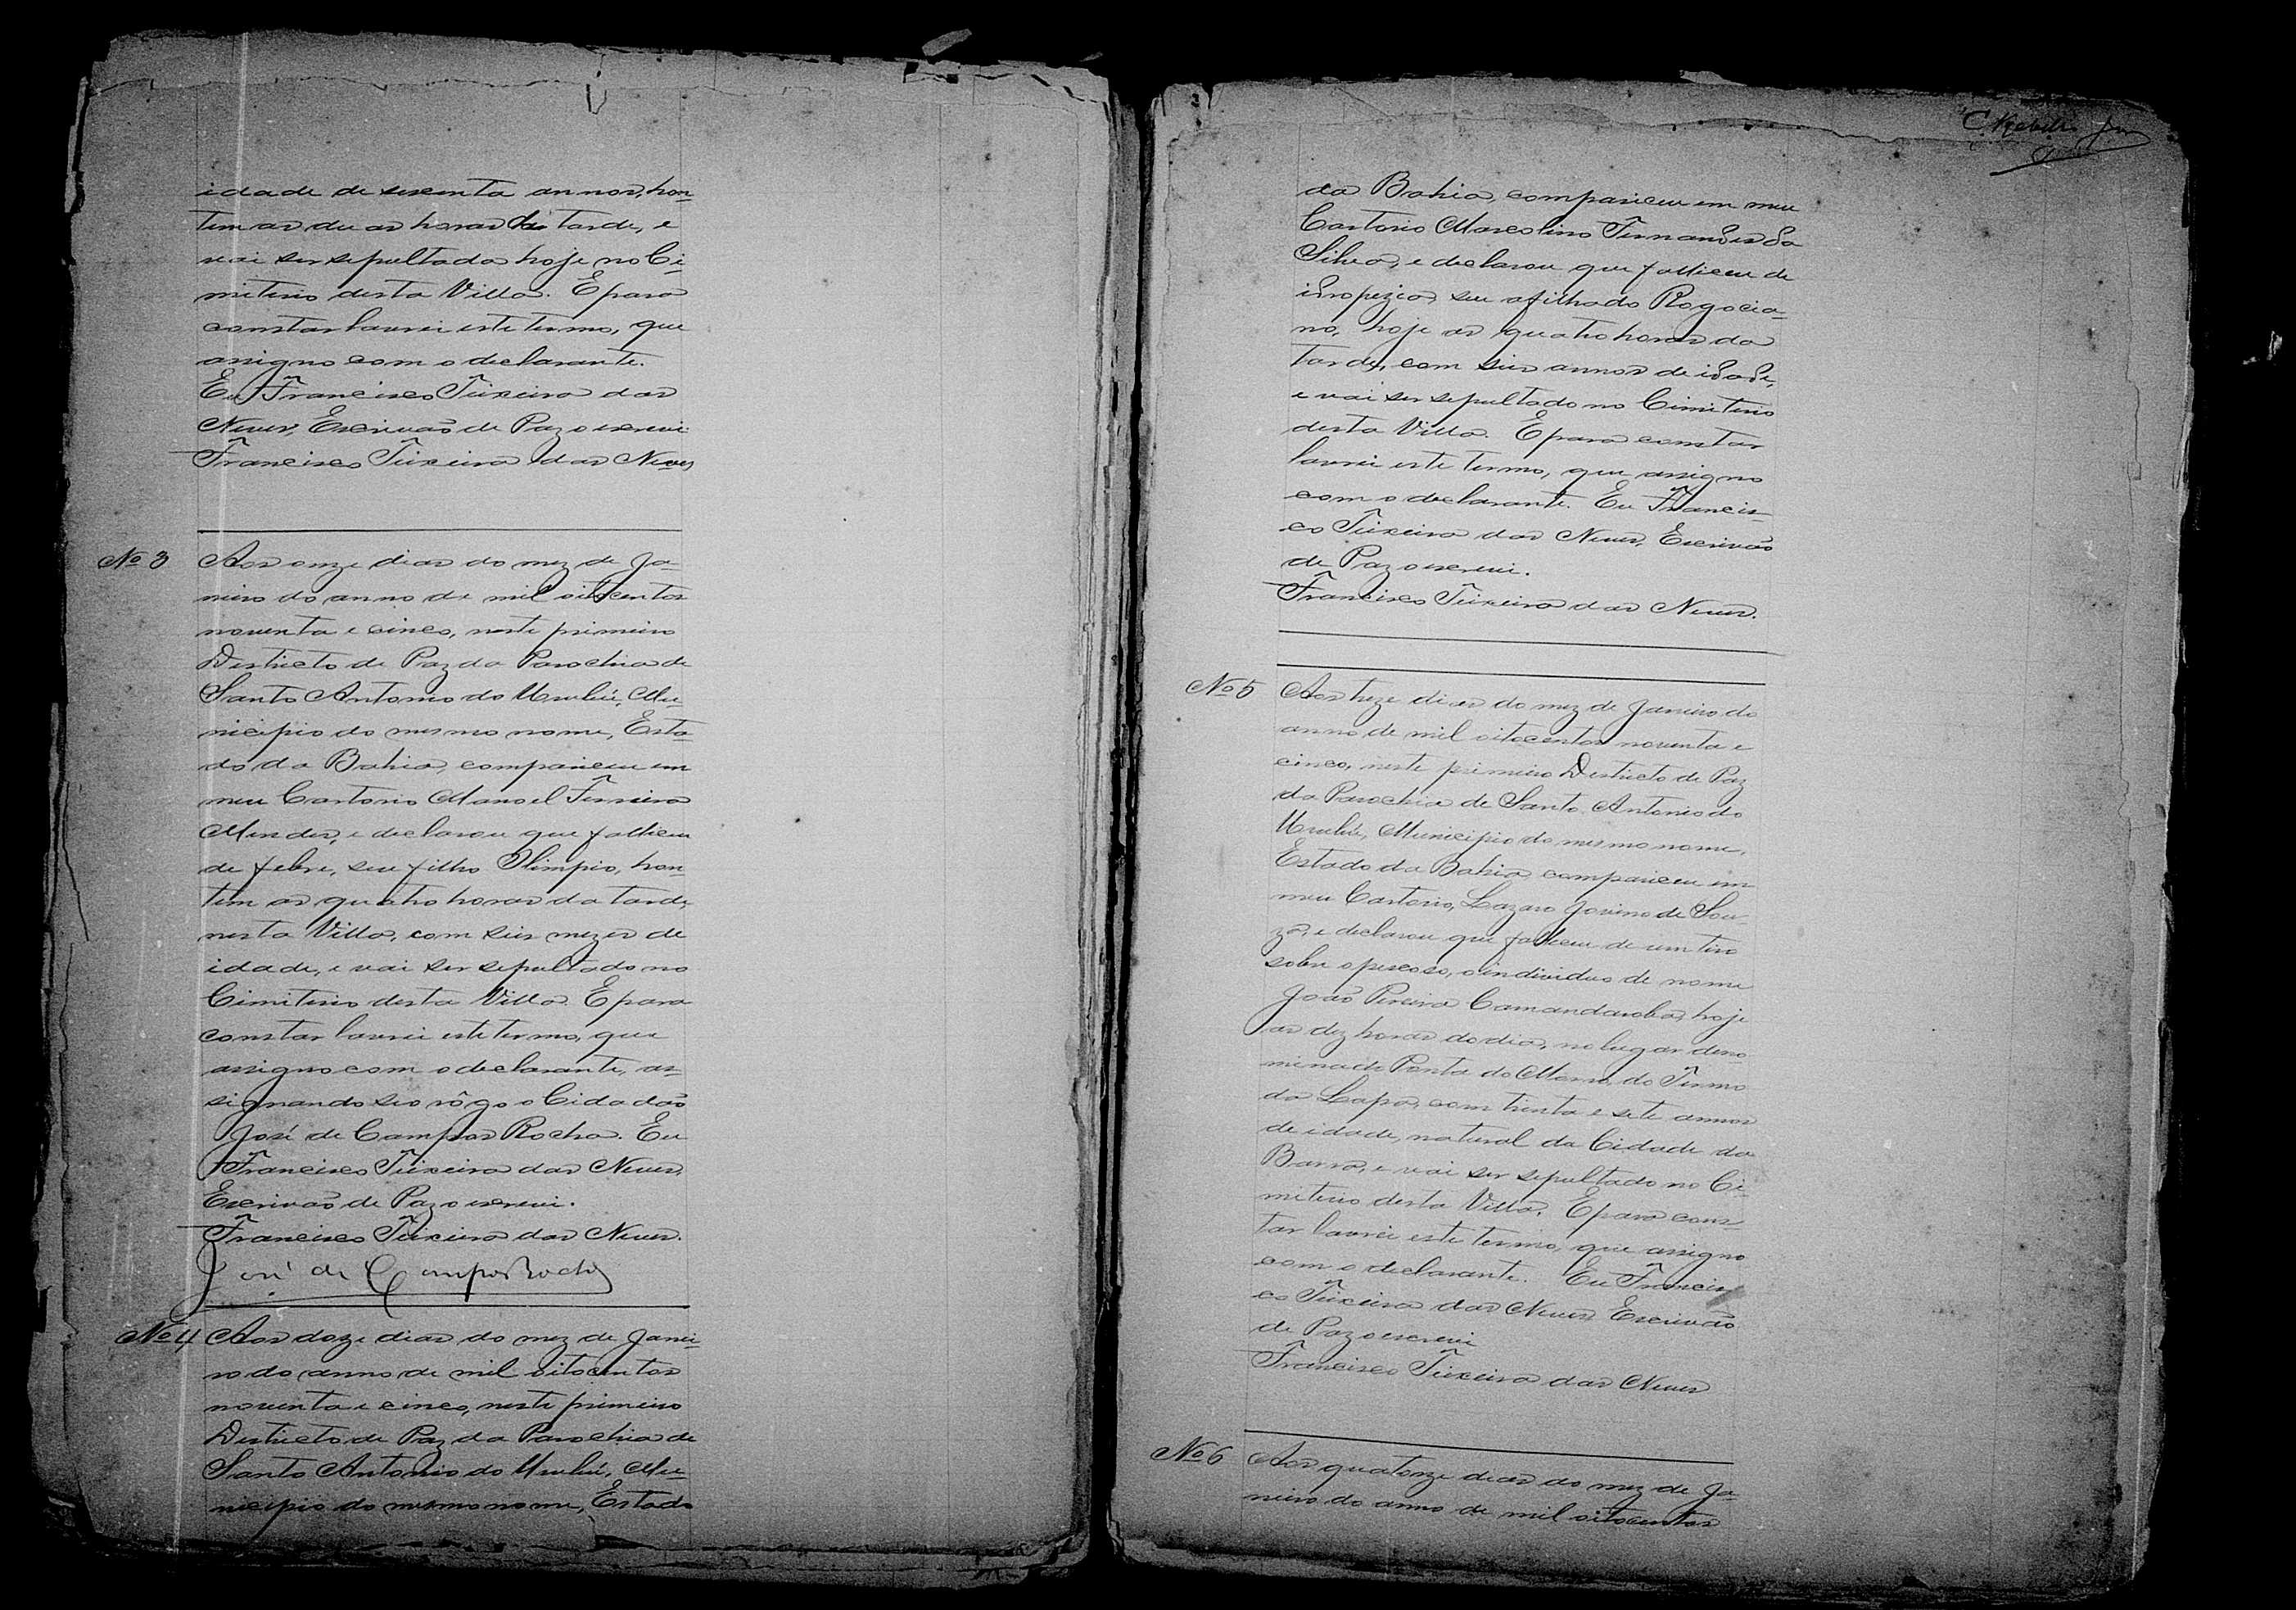 idade de sesenta annos, hon-
tem as duas horas da tarde, e
vai ser sepultada hoje no Ci-
miterio desta Villa. E para
constar lavrei este termo, que
assigno com o declarante.
Eu Francisco Teixeira das
Neves, Escrivão de Paz o escrevi.
Francisco Teixeira das Neves
Nº 3
Aos onze dias do mez de Ja-
neiro do anno de mil oitocentos
noventa e cinco, neste primeiro
Destricto de Paz da Parochia de
Santo Antonio do Urubú, Mu-
nicipio do mesmo nome, Esta-
do da Bahia, compareceu em
meu Cartorio Manoel Ferreira
Mendes, e declarou que falleceu
de febre, seu filho Olimpio, hon
tem as quatro horas da tarde,
nesta Villa, com seis mezes de
idade, e vai ser sepultado no
Cimiterio desta Villa. E para
constar lavrei este termo, que
assigno com o declarante, as-
signando seo rôgo o Cidadão
José de Campos Rocha. Eu
Francisco Teixeira das Neves,
Escrivão de Paz o escrevi.
Francisco Teixeira das Neves.
José de Campos Rocha
Nº 4
Aos doze dias do mez de Janei-
ro do anno de mil oitocentos
noventa e cinco, neste primeiro
Destricto de Paz da Parochia de
Santo Antonio do Urubú, Mu-
nicipio do mesmo nome, Estado
da Bahia, compareceu em meu
Cartorio Marcolino Fernandes da
Silva, e declarou que falleceu de
idropezia, seu afilhado Rogocia-
no, hoje as quatro horas da
tarde, com seis annos de idade,
e vai ser sepultado no Cimiterio
desta Villa. E para constar
lavrei este termo, que assigno
com o declarante. Eu Francis-
co Teixeira das Neves, Escrivão
de Paz o escrevi.
Francisco Teixeira das Neves.
Nº 5
Aos treze dias do mez de Janeiro do
anno de mil oitocentos noventa e
cinco, neste primeiro Destricto de Paz
da Parochia de Santo Antonio do
Urubú, Municipio do mesmo nome,
Estado da Bahia, compareceu em
meu Cartorio, Lazaro Jovino de Sou-
za, e declarou que falleceu de um tiro
sobre o pescoso, o individuo de nome
João Pereira Camandaroba, hoje
as dez horas do dia, no lugar deno
minado Ponta do Morro, do Termo
da Lapa, com trinta e sete annos
de idade, natural da Cidade da
Barra, e vai ser sepultado no Ci-
miterio desta Villa. E para cons-
tar lavrei este termo, que assigno
com o declarante. Eu Francis-
co Teixeira das Neves Escrivão
de Paz o escrevi
Francisco Teixeira das Neves
Nº 6
Aos quatorze dias do mez de Ja-
neiro do anno de mil oitocentos